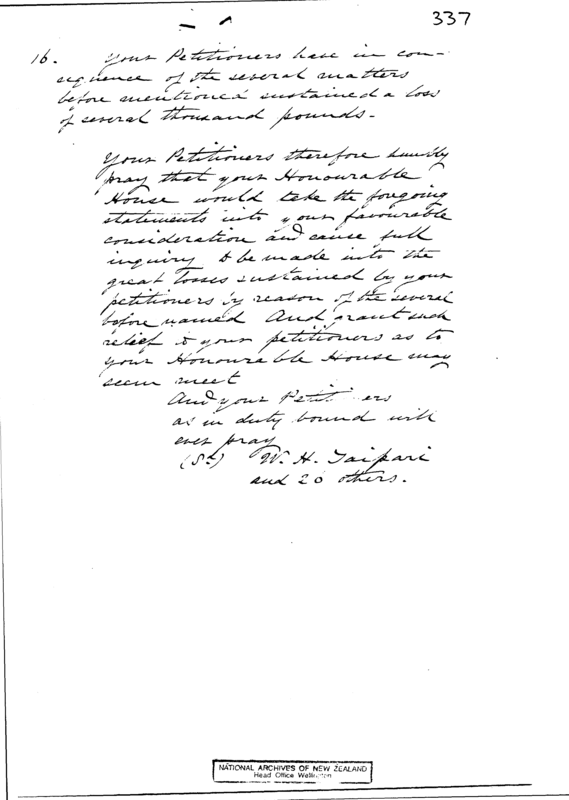 337
16. Your Petitioners have in con-
sequence of the several matters
before mentioned sustained a loss
of several thousand pounds.
Your Petitioners therefore humbly
pray that your Honourable
House would take the foregoing
statements into your favourable
consideration and cause full
inquiry to be made into the
great losses sustained by your
petitioners by reason of the several
before named And grant such
relief to your petitioners as to
your Honourable House may
seem meet
And your Petitioners
as in duty bound will
ever pray
(Sd) W. H. Taipari
and 20 others.
NATIONAL ARCHIVES OF NEW ZEALAND
Head Office Wellington